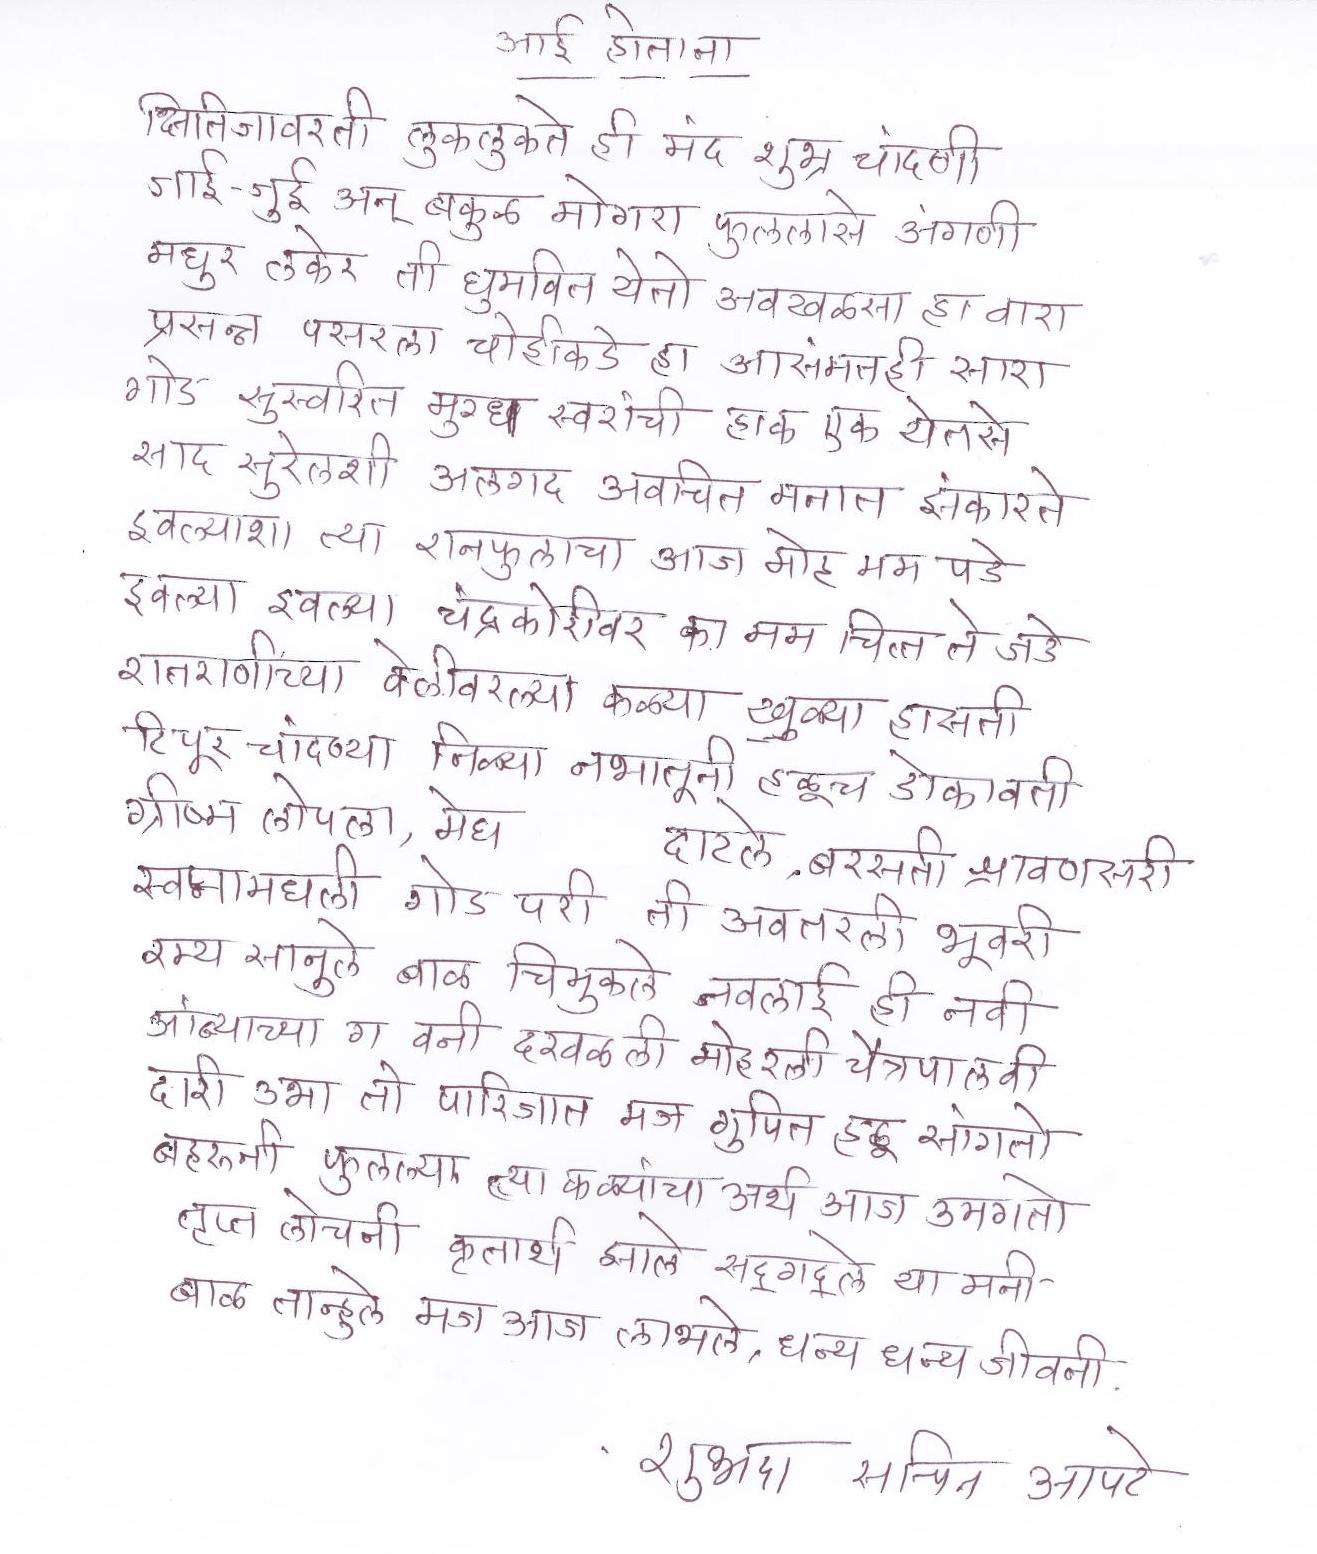 आई होताना
क्षितिजावरती लुकलुकते ही मंद शुभ्र चांदणी
जाई-जुई अन् बकुळ मोगरा फुललासे अंगणी
मधुर लकेर ती घुमवित येतो अवखळसा हा वारा
प्रसन्न पसरला चोहीकडे हा आसंमतही सारा
गोड सुस्वरित मुग्ध स्वरांची हाक एक येतसे
साद सुरेलशी अलगद अवचित मनात झंकारते
इवल्याशा त्या रानफुलाचा आज मोह मम पडे
इवल्या इवल्या चंद्रकोरीवर का मम चित्त ते जडे
रातराणीच्या वेलीवरल्या कळ्या खुळ्या हासती
टिपूर चांदण्या निळ्या नभातूनी हळूच डोकावती
ग्रीष्म लोपला, मेघ दाटले, बरसती श्रावणसरी
स्वप्नामधली गोड परी ती अवतरली भूवरी
रम्य सानुले बाळ चिमुकले नवलाई ही नवी
आंब्याच्या ग वनी दरवळली मोहरली चैत्रपालवी
दारी उभा तो पारिजात मज गुपित हळू सांगतो
बहरूनी फुलल्या त्या कळ्यांचा अर्थ आज उमगतो
तृप्त लोचनी कृतार्थ झाले सद्गद्ले या मनी
बाळ तान्हुले मज आज लाभले, धन्य धन्य जीवनी.
शुभदा सचिन आपटे